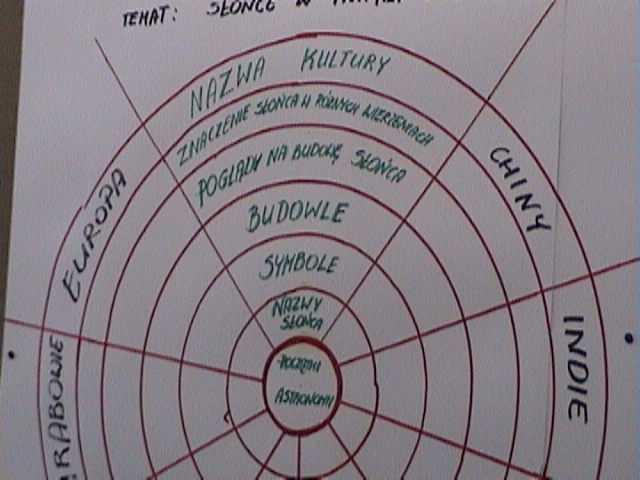 TEMAT: SŁOŃCE W
NAZWA KULTURY
ZNACZENIE SŁOŃCA W RÓŻNYCH WIERZENIACH
POGLĄDY NA BUDOWĘ SŁOŃCA
BUDOWLE
SYMBOLE
NAZWY
SŁOŃCA
POCZĄTKI
ASTRONOMII
EUROPA
CHINY
INDIE
RABOWIE